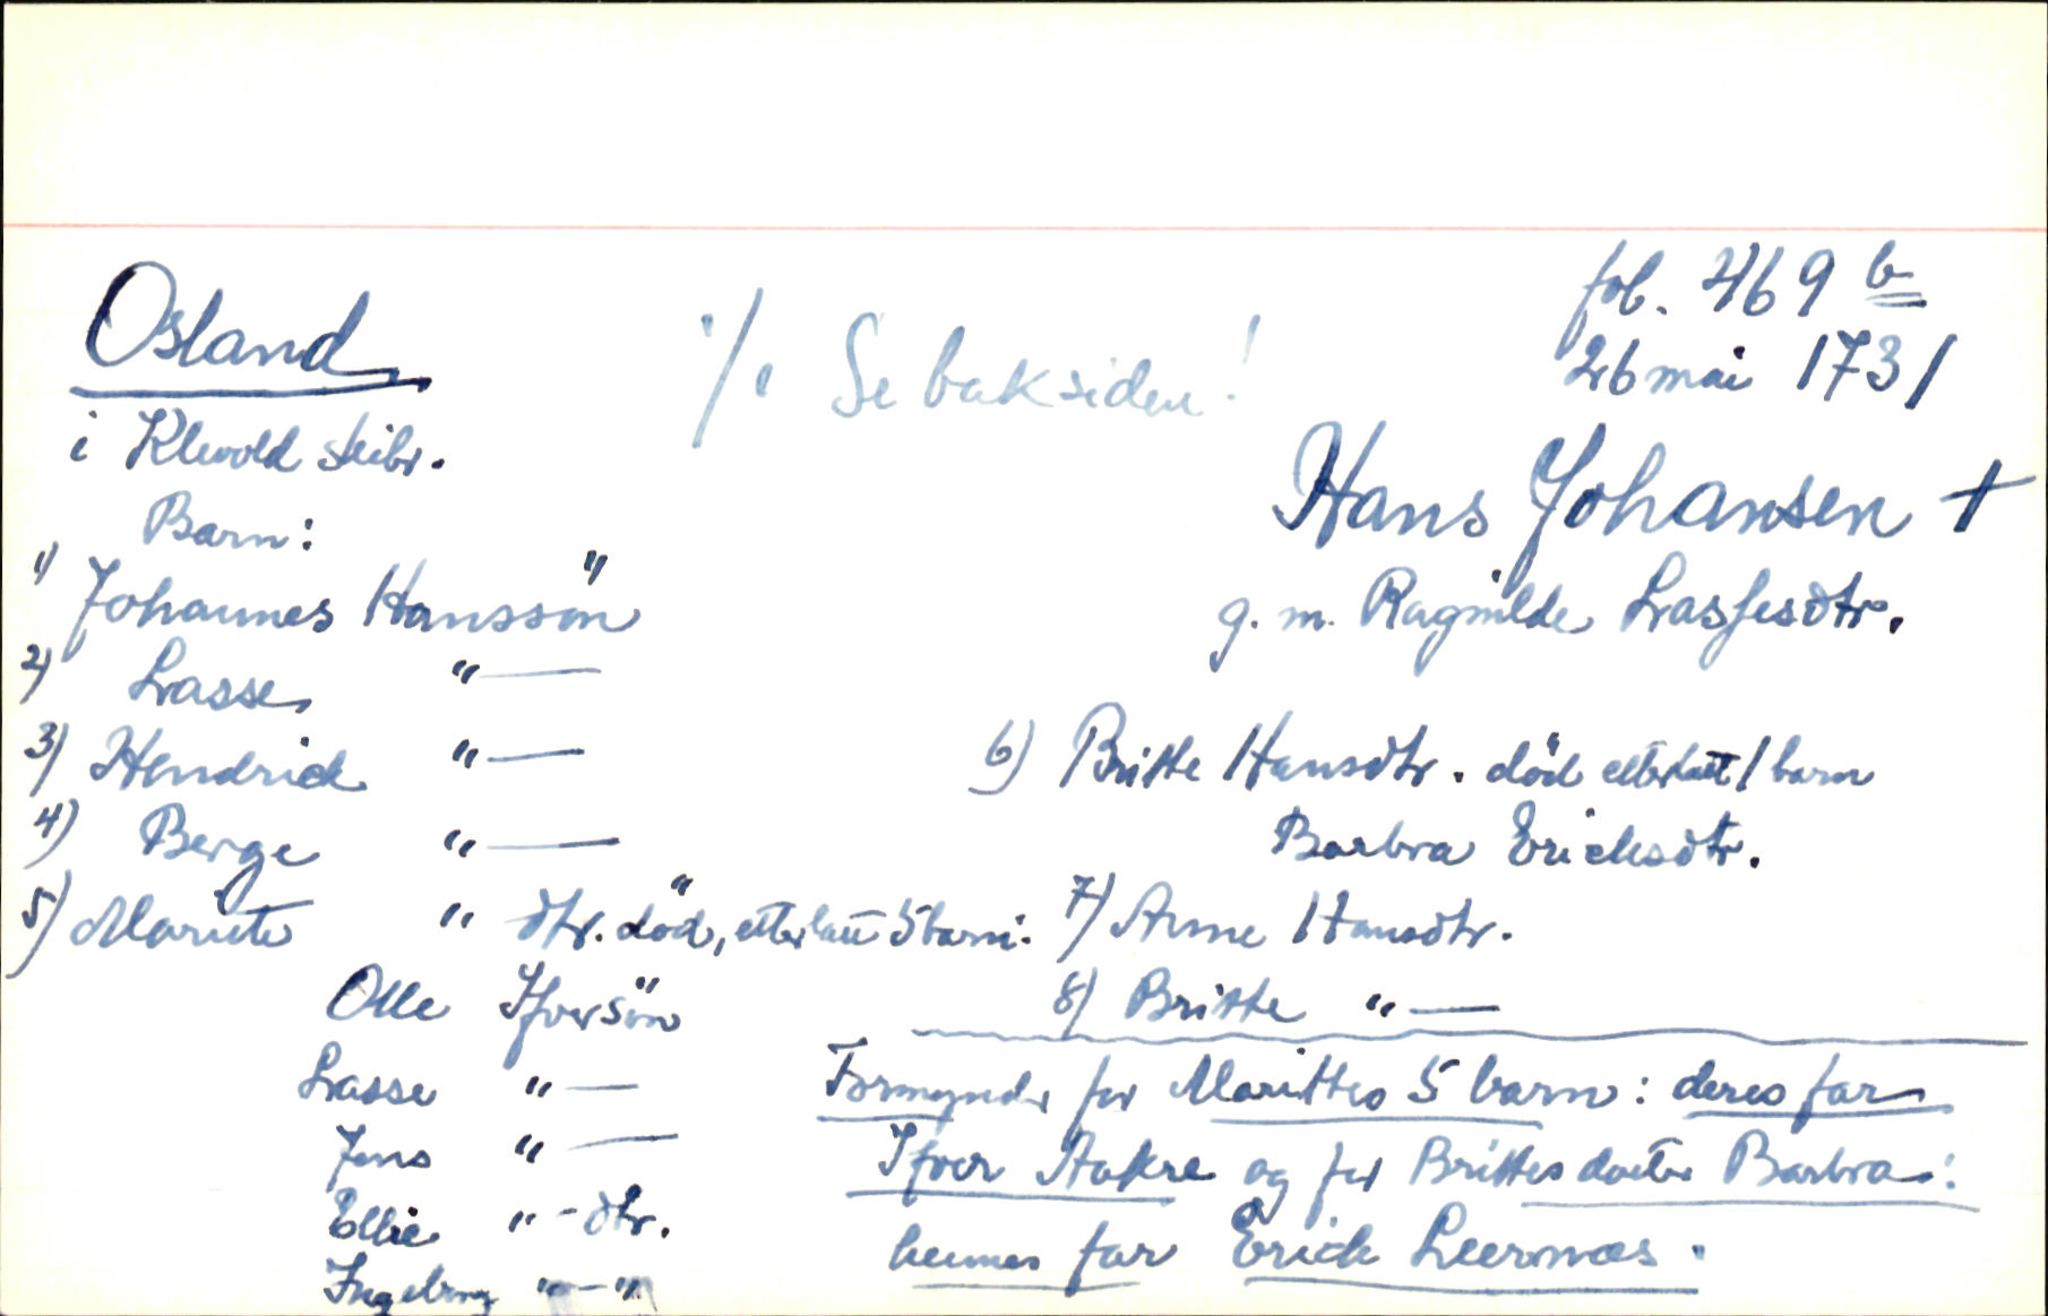 Osland
i Klevold skibr.
·/. Se baksiden!
fol. 469 b
26 mai 1731
Hans Johansen +
g. m. Ragnilde Lassesdtr.
Barn:
1) Johannes Hanssön
2) Lasse "—
3) Hendrick "—
4) Berge "—
5) Marite " dtr. död, etterlatt 5 barn:
Olle Ifversön
Lasse "—
Jens "—
Ellie "-dtr.
Ingeborg "-"
6) Britte Hansdtr. död etterlatt 1 barn
Barbra Ericksdtr.
7) Anne Hansdtr.
8) Britte "—
Formynder for Marittes 5 barn: deres far
Ifver Aakre og for Brittes datter Barbra:
hennes far Erick Leernæs.